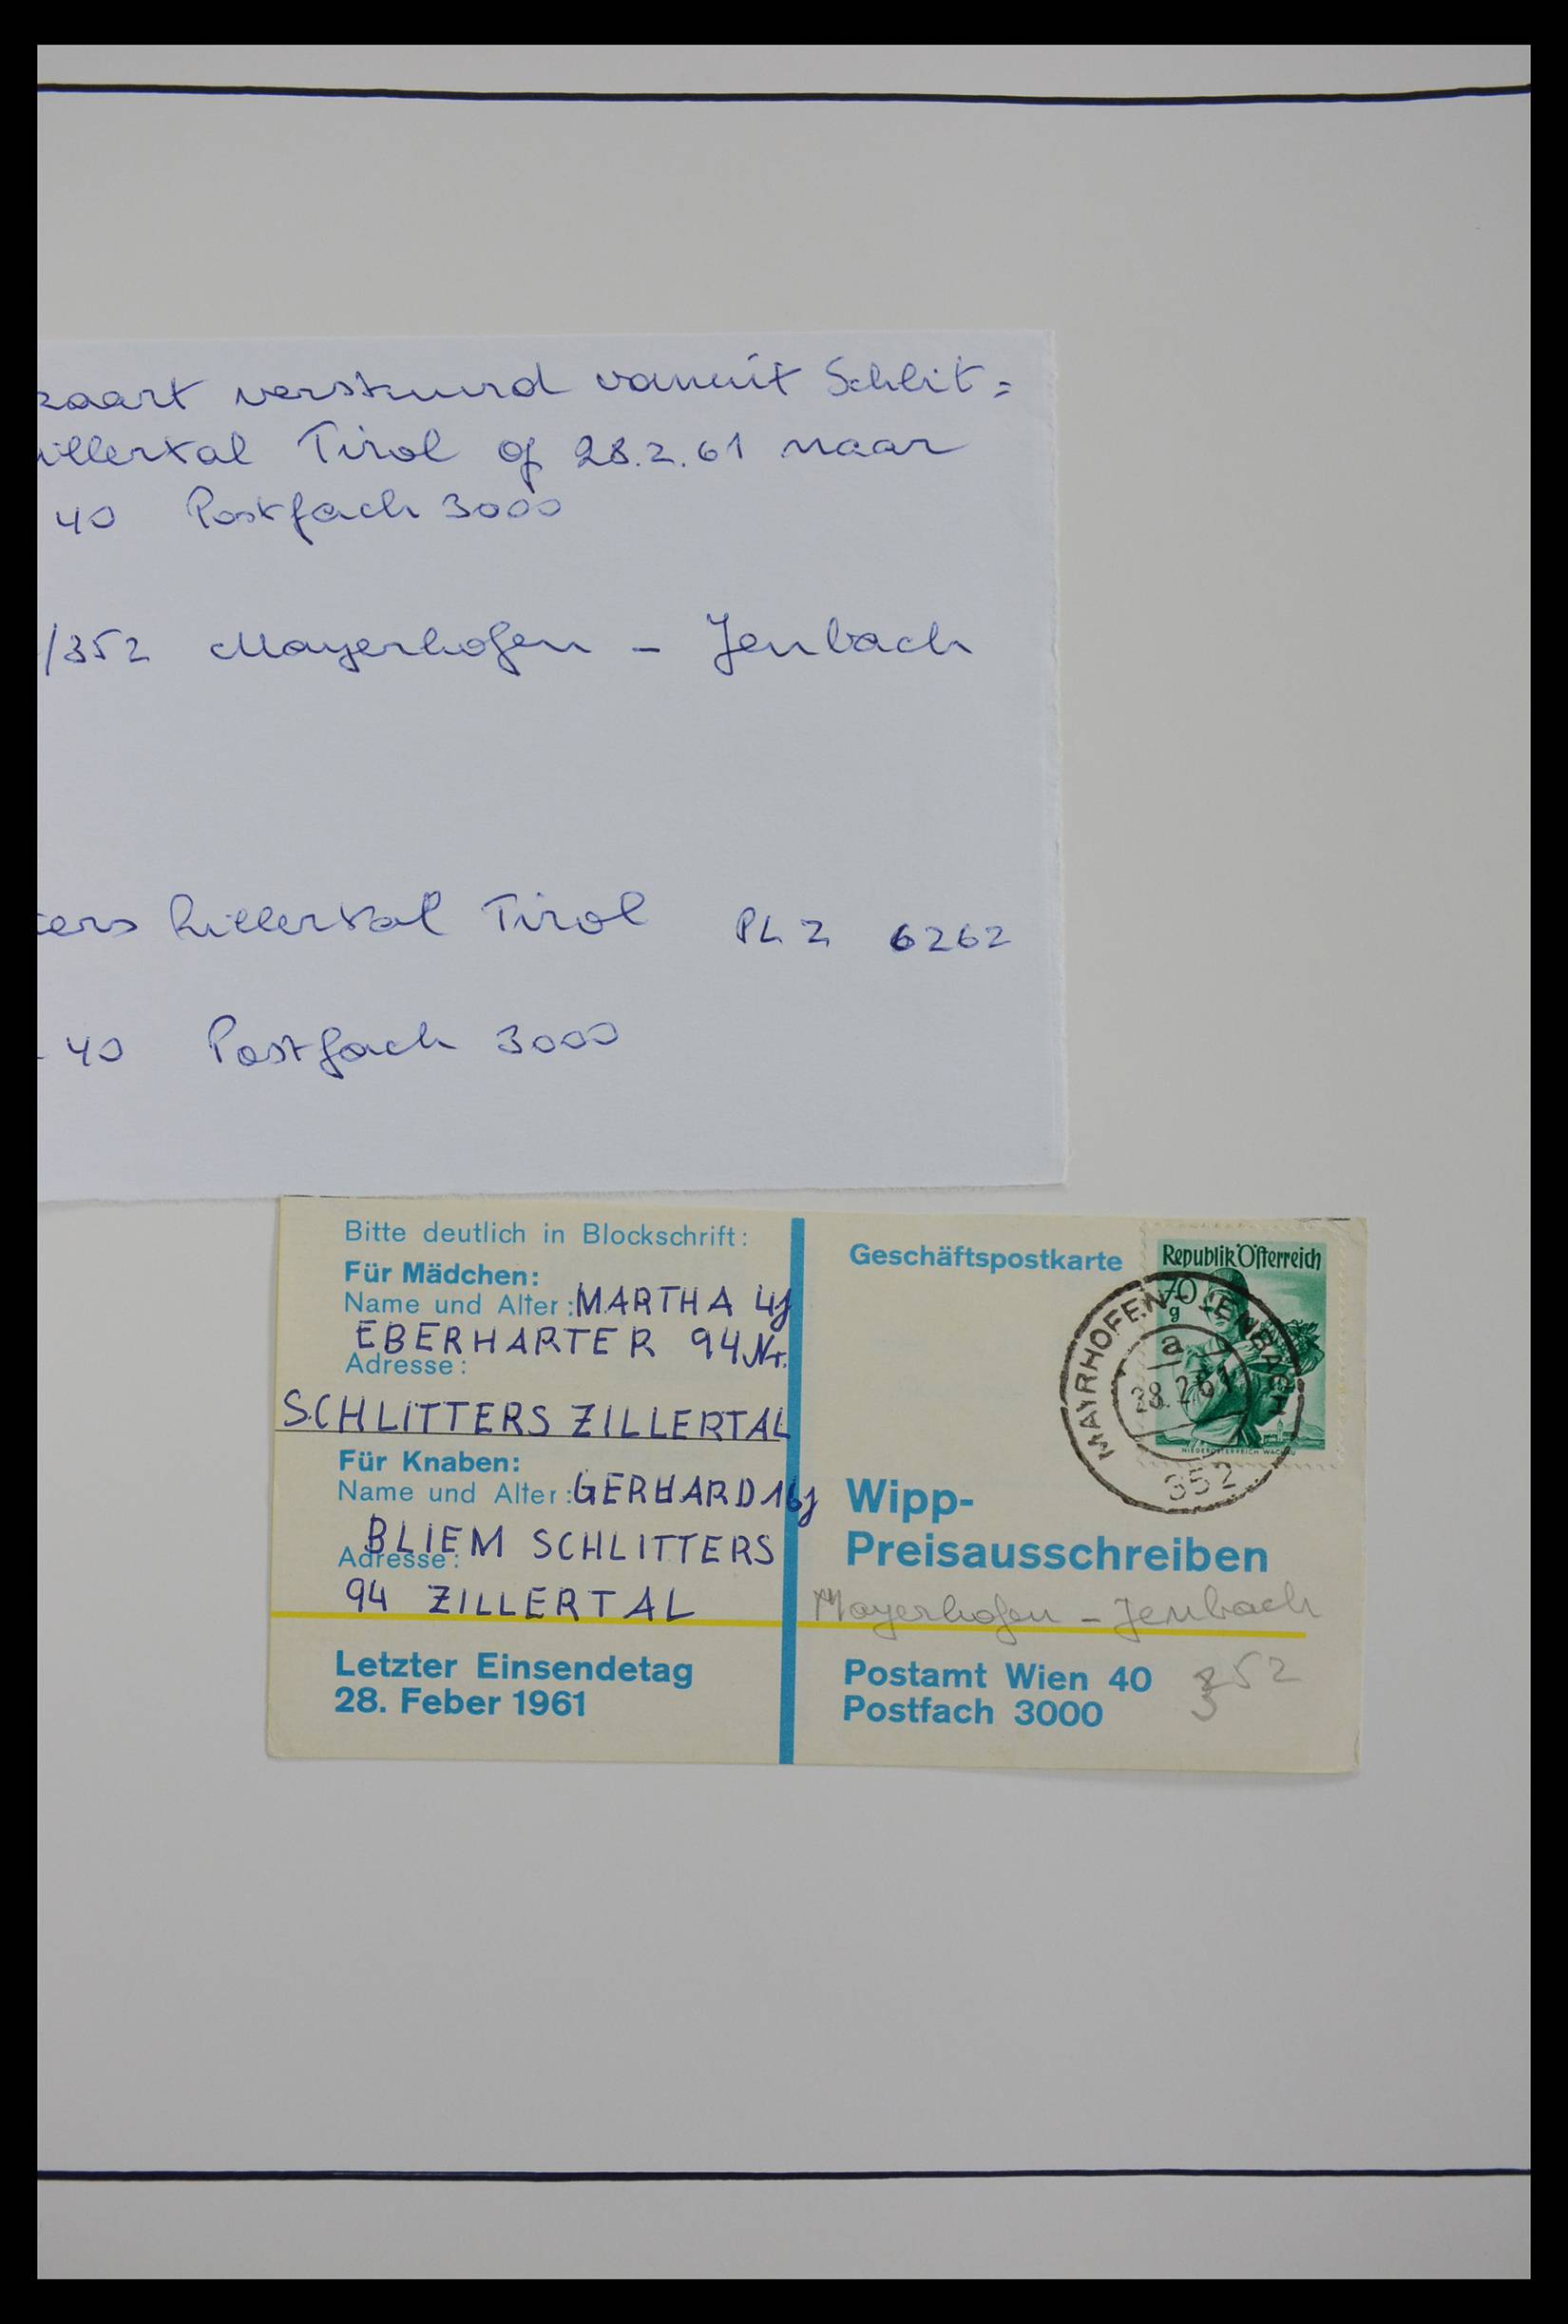 kaart verstuurd vanuit Schlit=
illertal Tirol op 28.2.61 naar
40 Postfach 3000
/352 Mayerhofen - Jenbach
ters Zillertal Tirol PLZ 6262
40 Postfach 3000
Bitte deutlich in Blockschrift:
Für Mädchen:
Name und Alter: MARTHA 4j
EBERHARTER 94 Nr.
Adresse:
SCHLITTERS ZILLERTAL
Für Knaben:
Name und Alter: GERHARD 16j
BLIEM SCHLITTERS
Adresse:
94 ZILLERTAL
Letzter Einsendetag
28. Feber 1961
Geschäftspostkarte
Republik Österreich
70
g
NIEDERÖSTERREICH WACHAU
MAYRHOFEN - JENBACH
a
28.2.61
352
Wipp-
Preisausschreiben
Mayerhofen - Jenbach
Postamt Wien 40
352
Postfach 3000